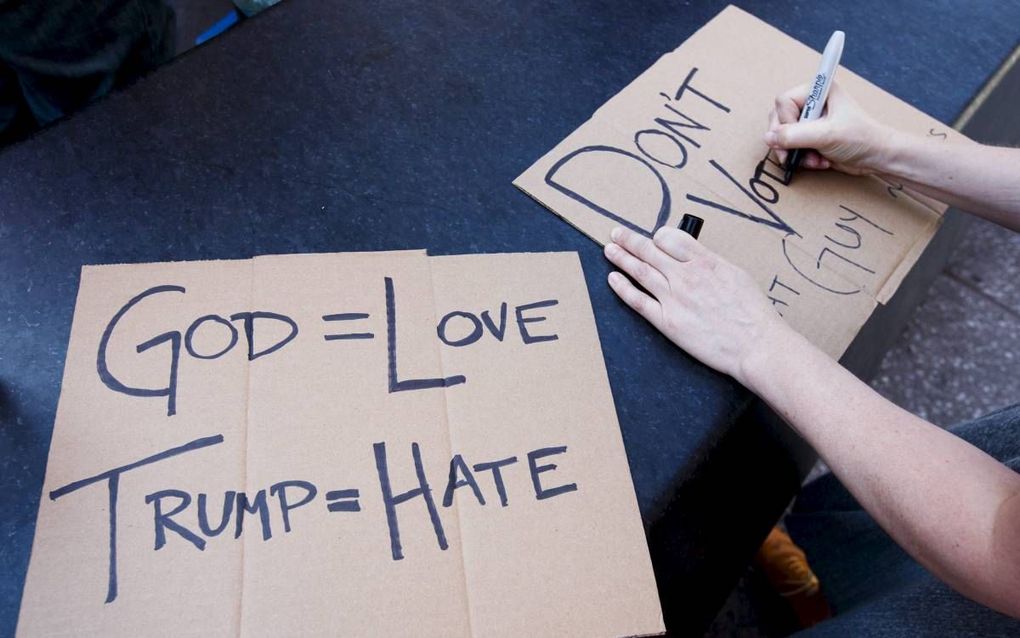 GOD = LOVE
TRUMP = HATE
DON'T
VOTE
GUY
Sharpie